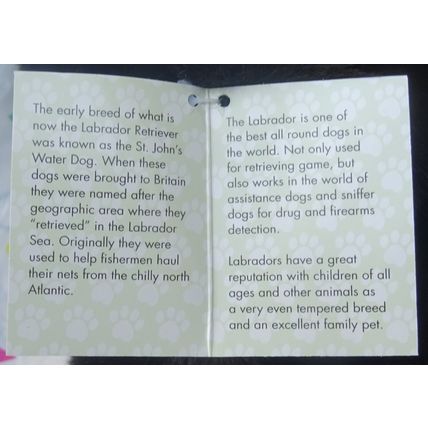 The early breed of what is
now the Labrador Retriever
was known as the St. John's
Water Dog. When these
dogs were brought to Britain
they were named after the
geographic area where they
"retrieved" in the Labrador
Sea. Originally they were
used to help fishermen haul
their nets from the chilly north
Atlantic.
The Labrador is one of
the best all round dogs in
the world. Not only used
for retrieving game, but
also works in the world of
assistance dogs and sniffer
dogs for drug and firearms
detection.
Labradors have a great
reputation with children of all
ages and other animals as
a very even tempered breed
and an excellent family pet.